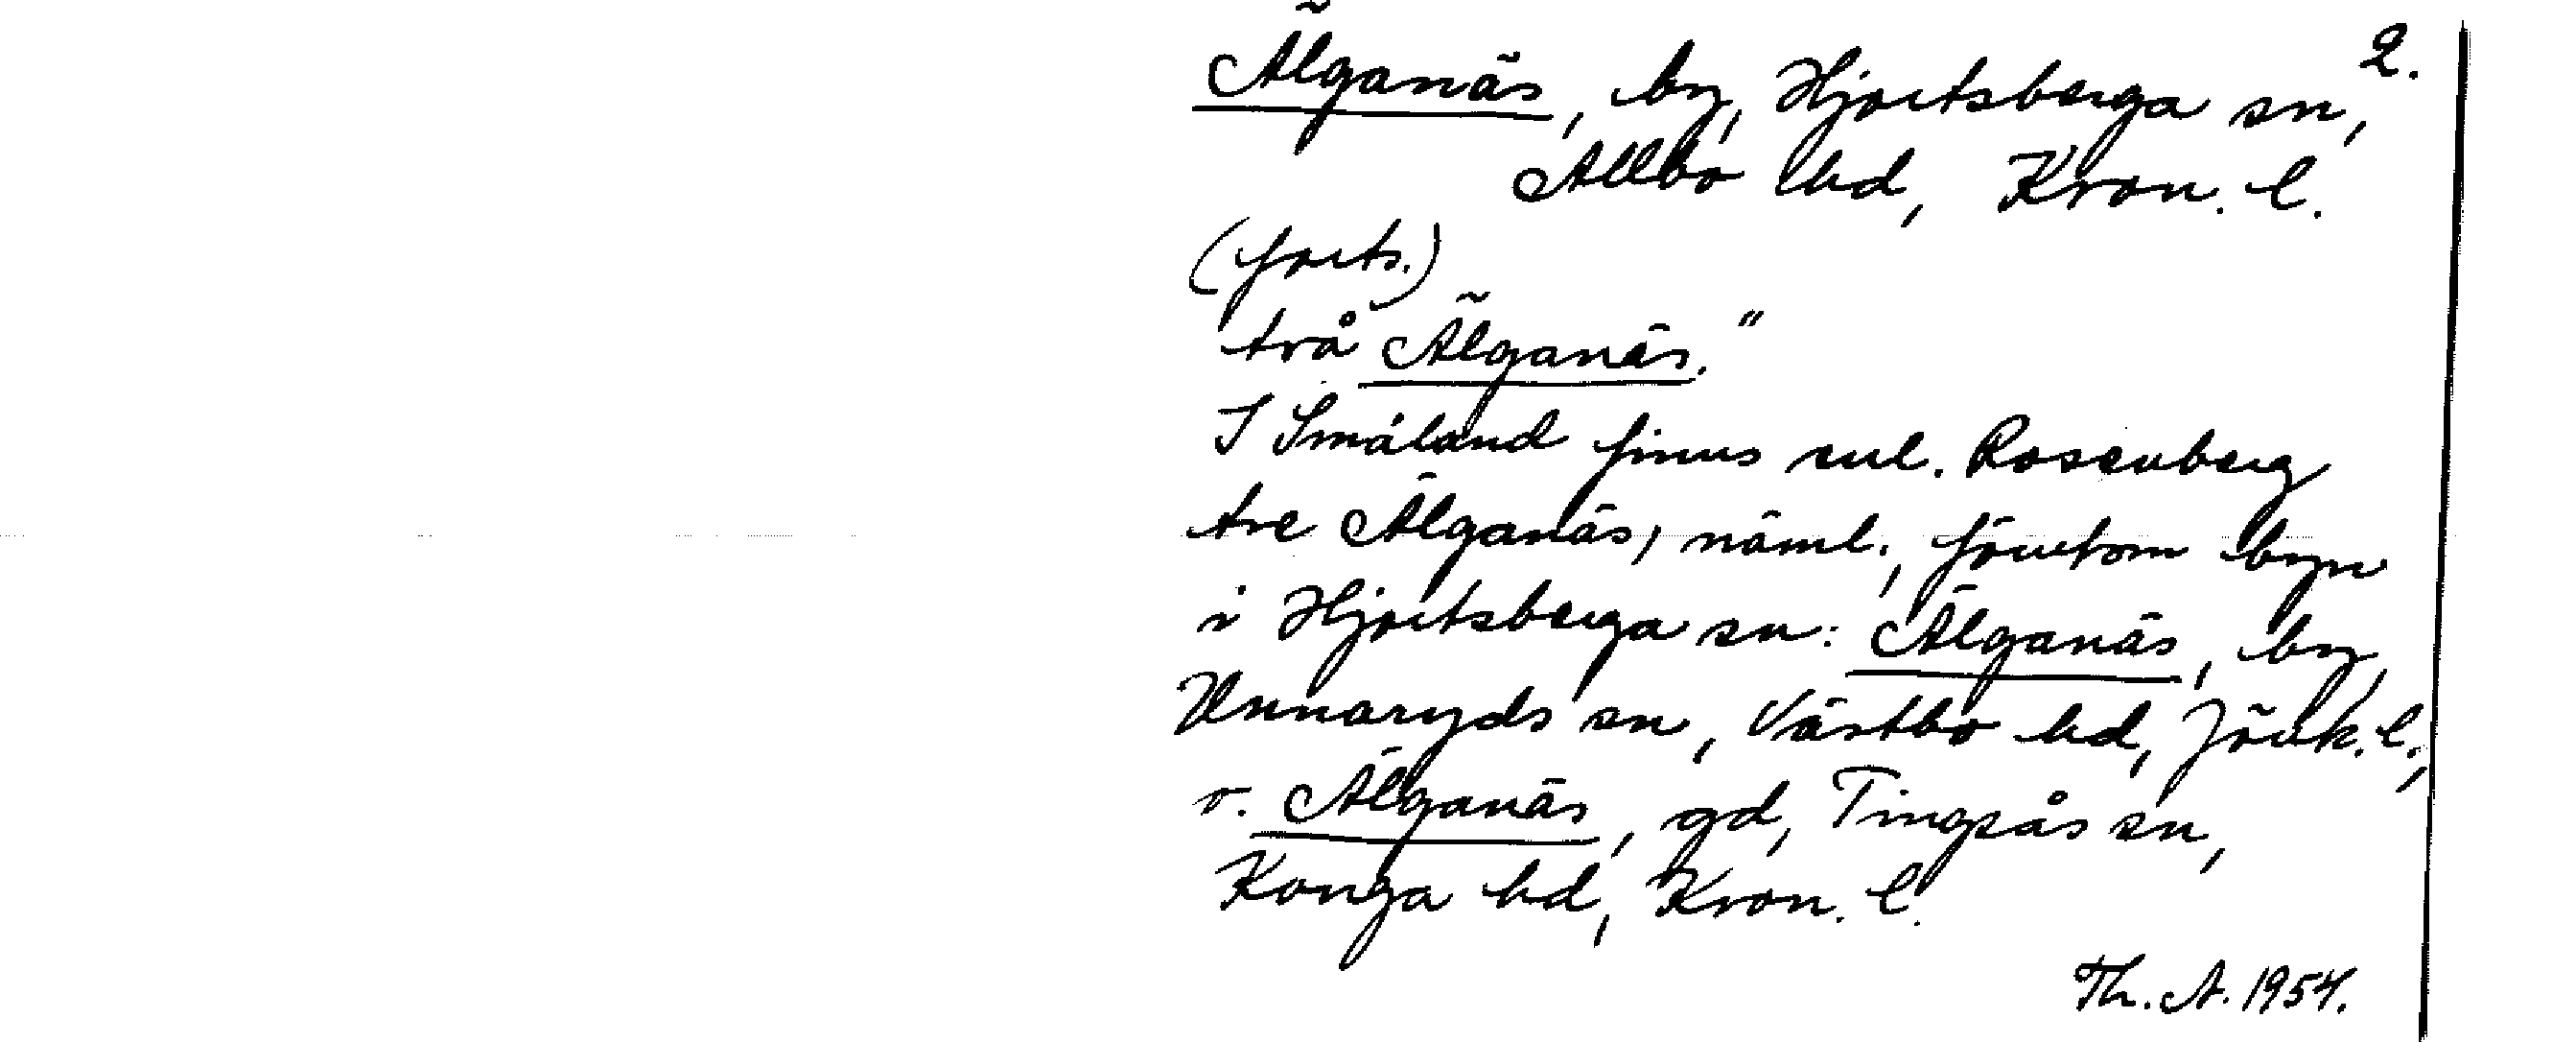 2.
Älganäs, by, Hjortsberga sn,
Allbo hd, Kron. l.
(forts.)
två Älganäs."
I Småland finns enl. Rosenberg
tre Älganäs, näml., förutom byn
i Hjortsberga sn: Älganäs, by,
Unnaryds sn, Västbo hd, Jönk. l.,
o. Älganäs, gd, Tingsås sn,
Konga hd, Kron. l.
Th. A. 1954.